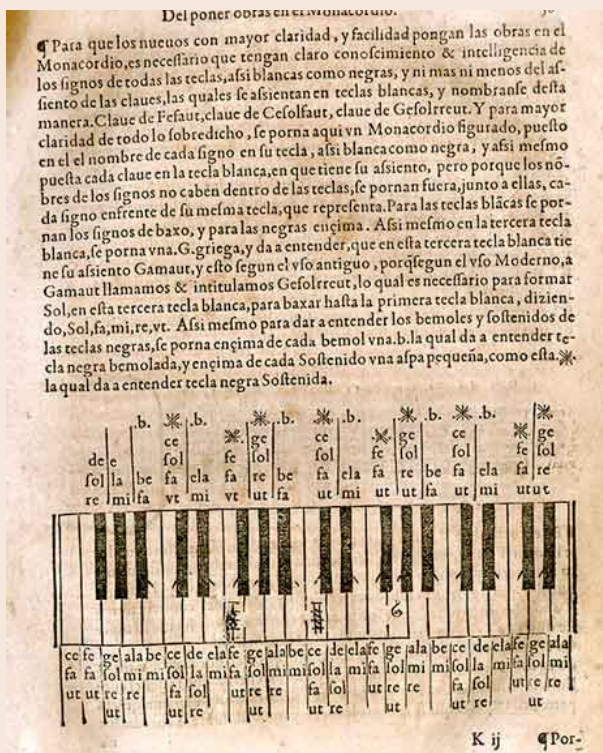 Del poner obras en el Monacordio.
¶ Para que los nueuos con mayor claridad, y facilidad pongan las obras en el
Monacordio, es neceſſario que tengan claro conoſcimiento & intelligencia de
los ſignos de todas las teclas, aſsi blancas como negras, y ni mas ni menos del aſ-
ſiento de las claues, las quales ſe aſsientan en teclas blancas, y nombranſe deſta
manera. Claue de Feſaut, claue de Ceſolfaut, claue de Geſolrreut. Y para mayor
claridad de todo lo ſobredicho, ſe porna aqui vn Monacordio figurado, pueſto
en el el nombre de cada ſigno en ſu tecla, aſsi blanca como negra, y aſsi meſmo
pueſta cada claue en la tecla blanca, en que tiene ſu aſsiento, pero porque los nō-
bres de los ſignos no caben dentro de las teclas, ſe pornan fuera, junto a ellas, ca-
da ſigno enfrente de ſu meſma tecla, que repreſenta. Para las teclas blācas ſe por-
nan los ſignos de baxo, y para las negras ençima. Aſsi meſmo en la tercera tecla
blanca, ſe porna vna. G. griega, y da a entender, que en eſta tercera tecla blanca tie
ne ſu aſsiento Gamaut, y eſto ſegun el vſo antiguo, porq̃ ſegun el vſo Moderno, a
Gamaut llamamos & intitulamos Geſolrreut, lo qual es neceſſario para formar
Sol, en eſta tercera tecla blanca, para baxar haſta la primera tecla blanca, dizien-
do, Sol, fa, mi, re, vt. Aſsi meſmo para dar a entender los bemoles y ſoſtenidos de
las teclas negras, ſe porna ençima de cada bemol vna. b. la qual da a entender te-
cla negra bemolada, y ençima de cada Soſtenido vna aſpa pequeña, como eſta. ※.
la qual da a entender tecla negra Soſtenida.
.b. ※ .b. ※ .b. ※ .b. ※ .b. ※ .b. ※
ce ※ ge ce ※ ge ce ※ ge
ſol fe ſol ſol fe ſol ſol fe ſol
de e
ſol la be fa ela fa re be fa ela fa re be fa ela fa re
re mi fa vt mi vt ut fa ut mi ut ut fa ut mi ut ut
ce fe ge ala be ce de ela fe ge ala be ce de ela fe ge ala be ce de ela fe ge ala
fa fa ſol mi mi ſol la mi fa ſol mi mi ſol la mi fa ſol mi mi ſol la mi fa ſol mi
ut ut re re fa ſol ut re re fa ſol ut re re fa ſol ut re re
ut ut re ut ut re ut ut re ut
K ij ¶ Por-